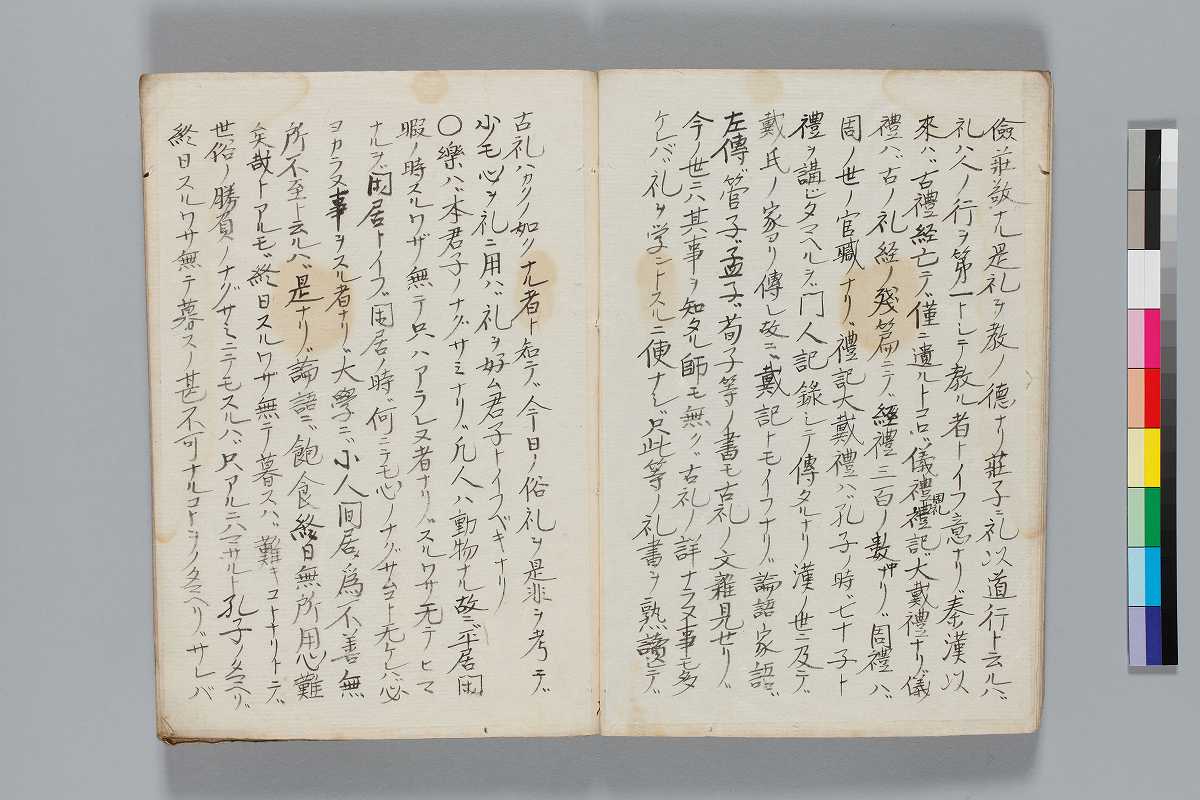 儉莊敬ナル是礼ヲ教ノ徳ナリ莊子ニ礼以道行ト云ルハ
礼ハ人ノ行ヲ第一トシテ教ル者トイフ意ナリ秦漢以
來ハ古禮経亡テ僅ニ遺ルトコロハ儀禮周礼禮記大戴禮ナリ儀
禮ハ古ノ礼経ノ殘篇ニテ経禮三百ノ數中ナリ周禮ハ
周ノ世ノ官職ナリ禮記大戴禮ハ孔子ノ時七十子ト
禮ヲ講シタマヘルヲ門人記錄シテ傳タルナリ漢ノ世ニ及テ
戴氏ノ家ヨリ傳シ故ニ戴記トモイフナリ論語家語
左傳管子孟子荀子等ノ書モ古礼ノ文雜見セリ
今ノ世ニハ其事ヲ知タル師モ無ク古礼ノ詳ナラヌ事モ多
ケレバ礼ヲ学ントスルニ便ナシ只此等ノ礼書ヲ熟讀シテ
古礼ハカクノ如クナル者ト知テ今日ノ俗礼ヲ是非ヲ考テ
少モ心ヲ礼ニ用ハ礼ヲ好ム君子トイフベキナリ
〇樂ハ本君子ノナグサミナリ凡人ハ動物ナル故ニ平居閑
暇ノ時スルワザ無テ只ハアラレヌ者ナリスルワサ无テヒマ
ナルヲ閑居トイフ閑居ノ時何ニテモ心ノナグサムコト无ケレハ必
ヨカラヌ事ヲスル者ナリ大學ニ小人間居為不善無
所不至ト云ルハ是ナリ論語ニ飽食終日無所用心難
矣哉トアルモ終日スルワザ無テ暮スハ難キコトナリトテ
世俗ノ勝負ノナグサミニテモスルハ只アルニハマサルト孔子ノタマヘリ
終日スルワサ無テ暮スノ甚不可ナルコトヲノタマヘリサレバ